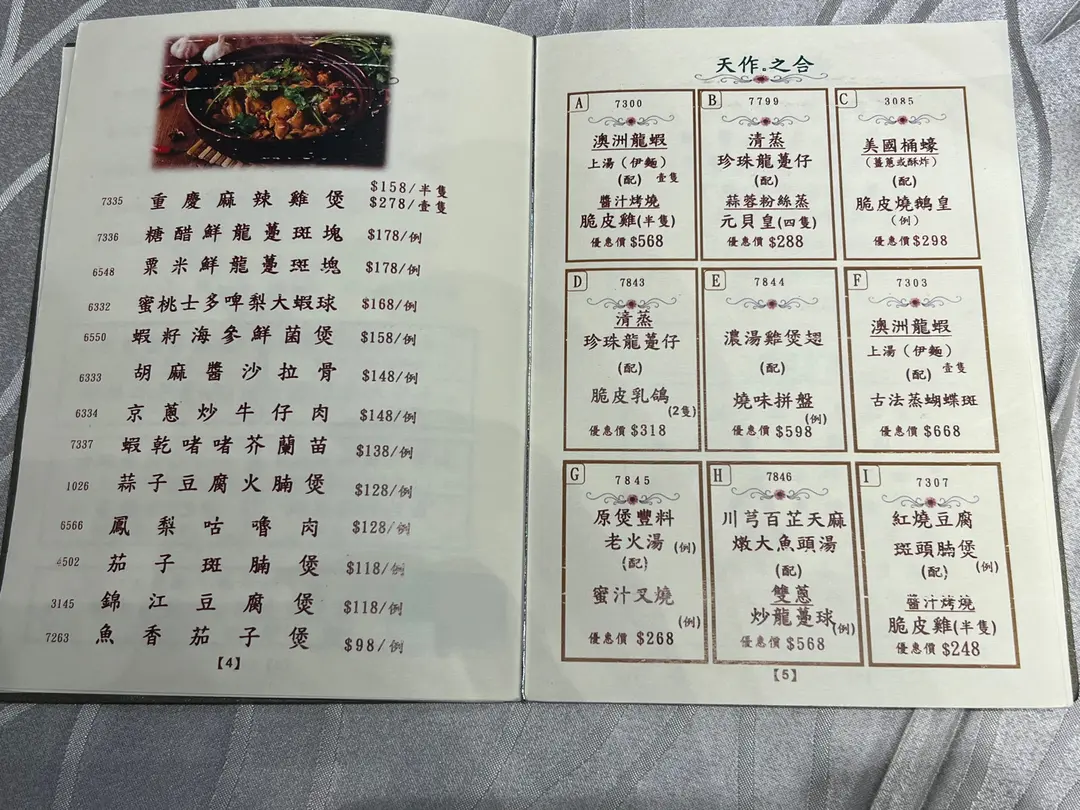 7335 重慶麻辣雞煲 $158/半隻
$278/壹隻
7336 糖醋鮮龍躉斑塊 $178/例
6548 粟米鮮龍躉斑塊 $178/例
6332 蜜桃士多啤梨大蝦球 $168/例
6550 蝦籽海參鮮菌煲 $158/例
6333 胡麻醬沙拉骨 $148/例
6334 京蔥炒牛仔肉 $148/例
7337 蝦乾啫啫芥蘭苗 $138/例
1026 蒜子豆腐火腩煲 $128/例
6566 鳳梨咕嚕肉 $128/例
4502 茄子斑腩煲 $118/例
3145 錦江豆腐煲 $118/例
7263 魚香茄子煲 $98/例
【4】
天作之合
A 7300
澳洲龍蝦
上湯（伊麵）
(配) 壹隻
醬汁烤燒
脆皮雞(半隻)
優惠價 $568
B 7799
清蒸
珍珠龍躉仔
(配)
蒜蓉粉絲蒸
元貝皇(四隻)
優惠價 $288
C 3085
美國桶蠔
(薑蔥或酥炸)
(配)
脆皮燒鵝皇
(例)
優惠價 $298
D 7843
清蒸
珍珠龍躉仔
(配)
脆皮乳鴿
(2隻)
優惠價 $318
E 7844
濃湯雞煲翅
(配)
燒味拼盤
(例)
優惠價 $598
F 7303
澳洲龍蝦
上湯（伊麵）
(配) 壹隻
古法蒸蝴蝶斑
優惠價 $668
G 7845
原煲豐料
老火湯(例)
(配)
蜜汁叉燒
(例)
優惠價 $268
H 7846
川芎百芷天麻
燉大魚頭湯
(配)
雙蔥
炒龍躉球(例)
優惠價 $568
I 7307
紅燒豆腐
斑頭腩煲
(配) (例)
醬汁烤燒
脆皮雞(半隻)
優惠價 $248
【5】